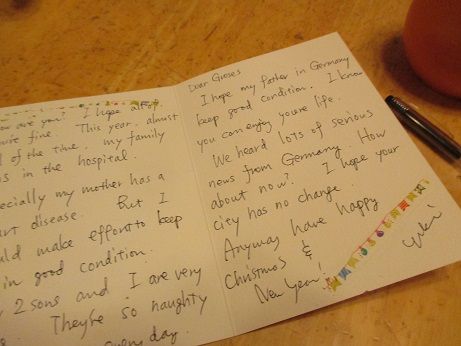 ow are you? I hope all of
fine. This year, almost
of the time, my family
in the hospital.
ecially my mother has a
art disease. But I
uld make effort to keep
in good condition.
2 sons and I are very
They're so naughty
every day.
Dear Gieses
I hope my father in Germany
keep good condition. I know
you can enjoy youre life.
We heard lots of serious
news from Germany. How
about now? I hope your
city has no change.
Anyway have happy
Christmas &
New Year!
yuki